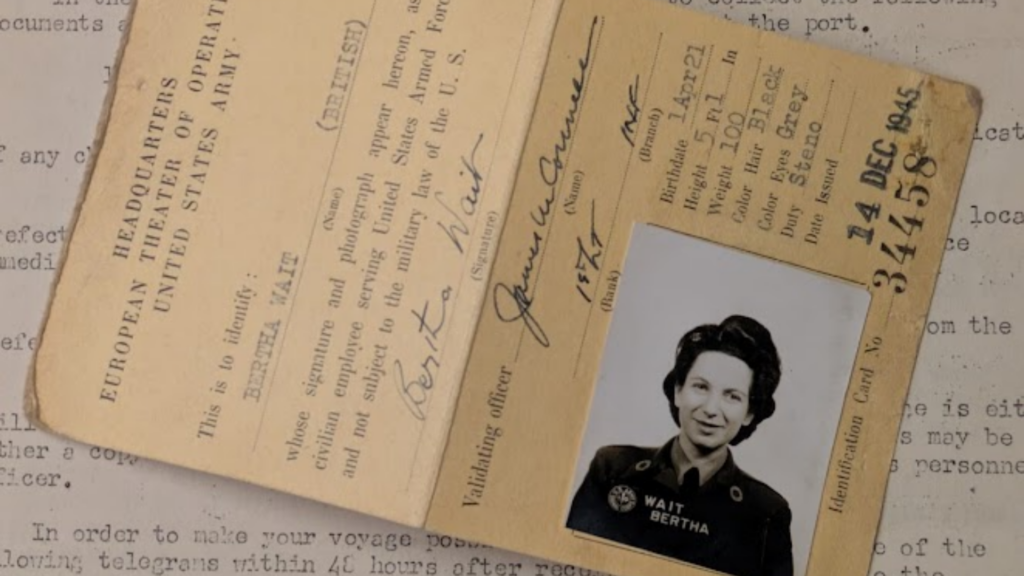 HEADQUARTERS
EUROPEAN THEATER OF
UNITED STATES ARMY
This is to identify:
BERTHA WAIT (BRITISH)
(Name)
whose signature and photograph appear hereon, as
civilian employee serving United States Armed
and not subject to the military law of the U. S.
Bertha Wait
(Signature)
Validating officer
(Name)
1st Lt INF
(Rank) (Branch)
Birthdate 1 Apr 21
Height 5 Ft 1 In
Weight 100
Color Hair Black
Color Eyes Grey
Duty Steno
Date Issued
14 DEC 1945
Identification Card No 34458
WAIT
BERTHA
the port.
of any
om the
is
may be
ther a
In order to make your voyage
of the
telegrams within 48 hours after
the